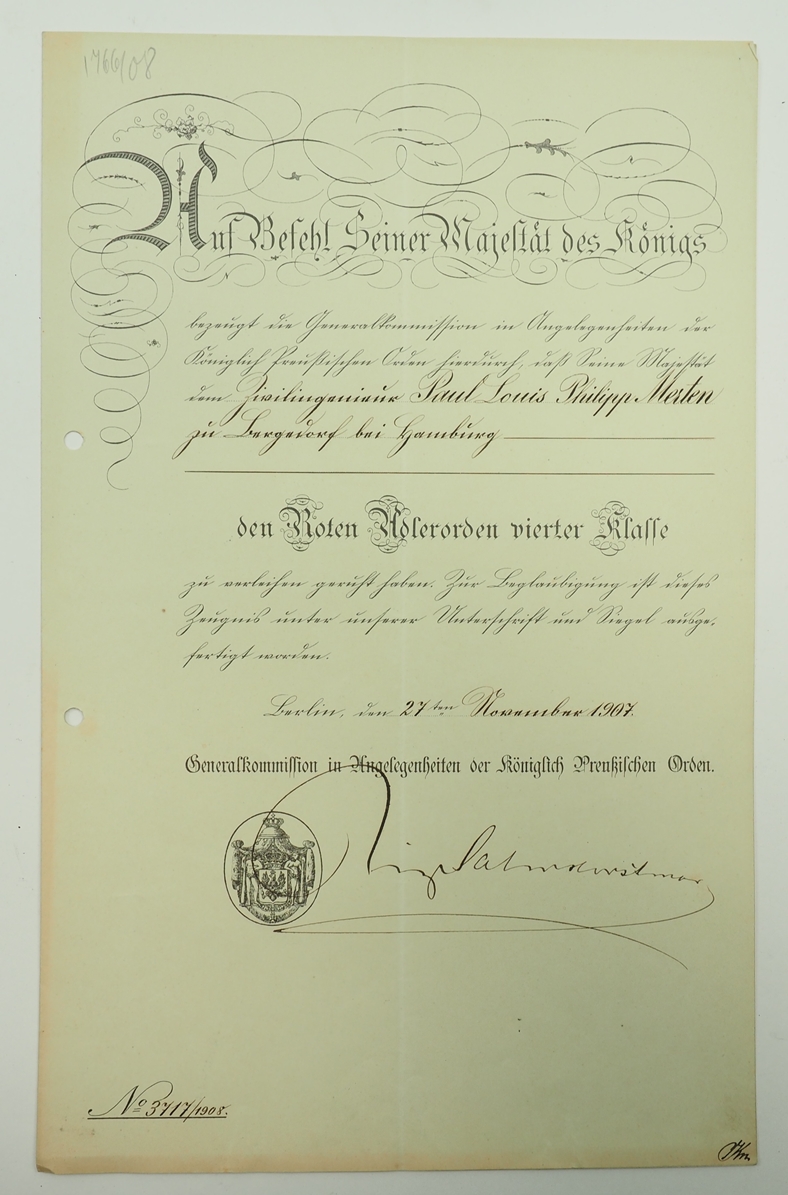 1766/08
Auf Befehl Seiner Majestät des Königs
bezeugt die Generalkommission in Angelegenheiten der
Königlich Preußischen Orden hierdurch, daß Seine Majestät
dem Zivilingenieur Paul Louis Philipp Merten
zu Bergedorf bei Hamburg
den Roten Adlerorden vierter Klasse
zu verleihen geruht haben. Zur Beglaubigung ist dieses
Zeugnis unter unserer Unterschrift und Siegel ausge-
fertigt worden.
Berlin, den 27ten November 1907.
Generalkommission in Angelegenheiten der Königlich Preußischen Orden.
No 3717/1908.